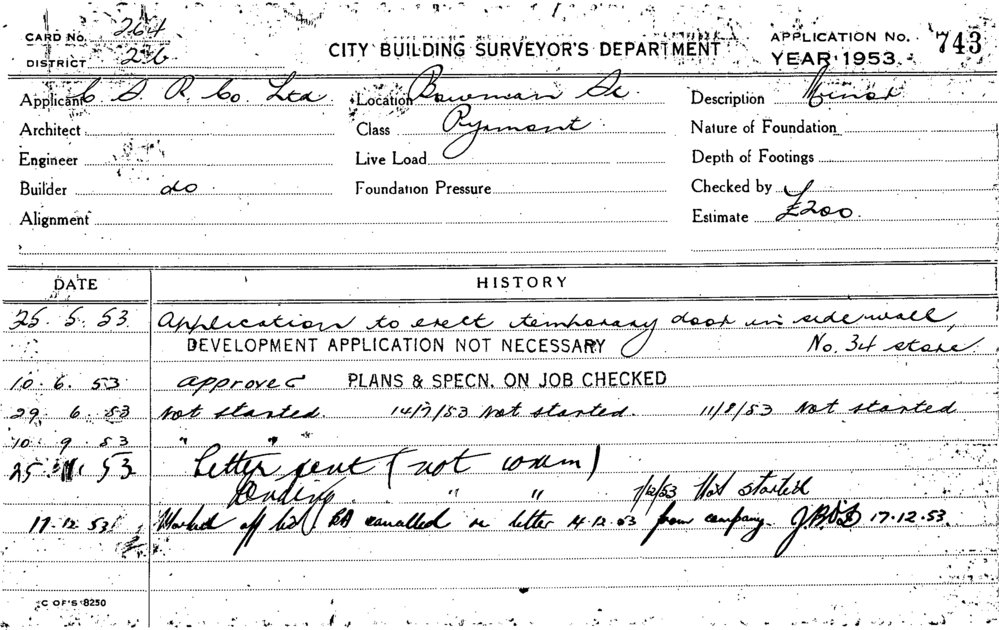 CARD NO. 264
DISTRICT 26
CITY BUILDING SURVEYOR'S DEPARTMENT
APPLICATION NO. 743
YEAR 1953
Applicant C S R Co Ltd Location Bowman St. Description Minor
Architect Class Pyrmont Nature of Foundation
Engineer Live Load Depth of Footings
Builder do Foundation Pressure Checked by
Alignment Estimate £200.
DATE HISTORY
25. 5. 53. Application to erect temporary door in side wall,
DEVELOPMENT APPLICATION NOT NECESSARY No. 34 store.
10. 6. 53 approved PLANS & SPECN. ON JOB CHECKED
29 6. 53 Not started. 14/7/53 Not started. 11/8/53 Not started
10. 9. 53 " "
25. 11. 53 Letter sent (not comm)
Pending " " 7/12/53 Not started
17.12.53 Marked off list BA cancelled re letter 14.12.53 from company. 17.12.53.
C OF S 8250